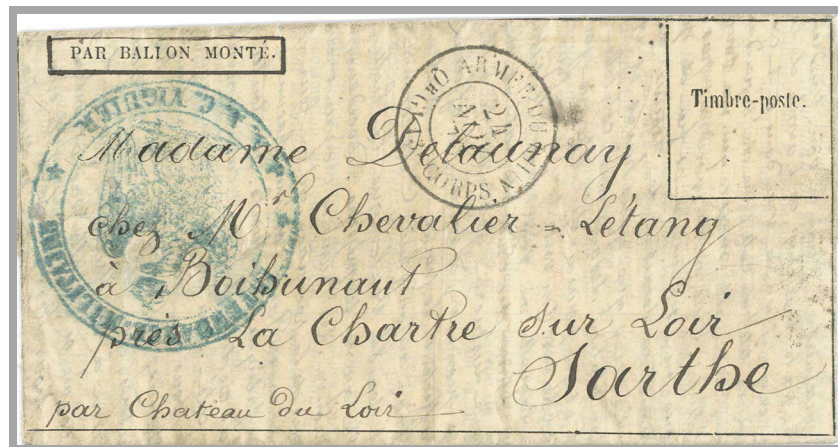 PAR BALLON MONTÉ.
Timbre-poste.
Madame Delaunay
chez Mr Chevalier = Létang
à Boihunaut
près La Chartre sur Loir
Sarthe
par Chateau du Loir
24